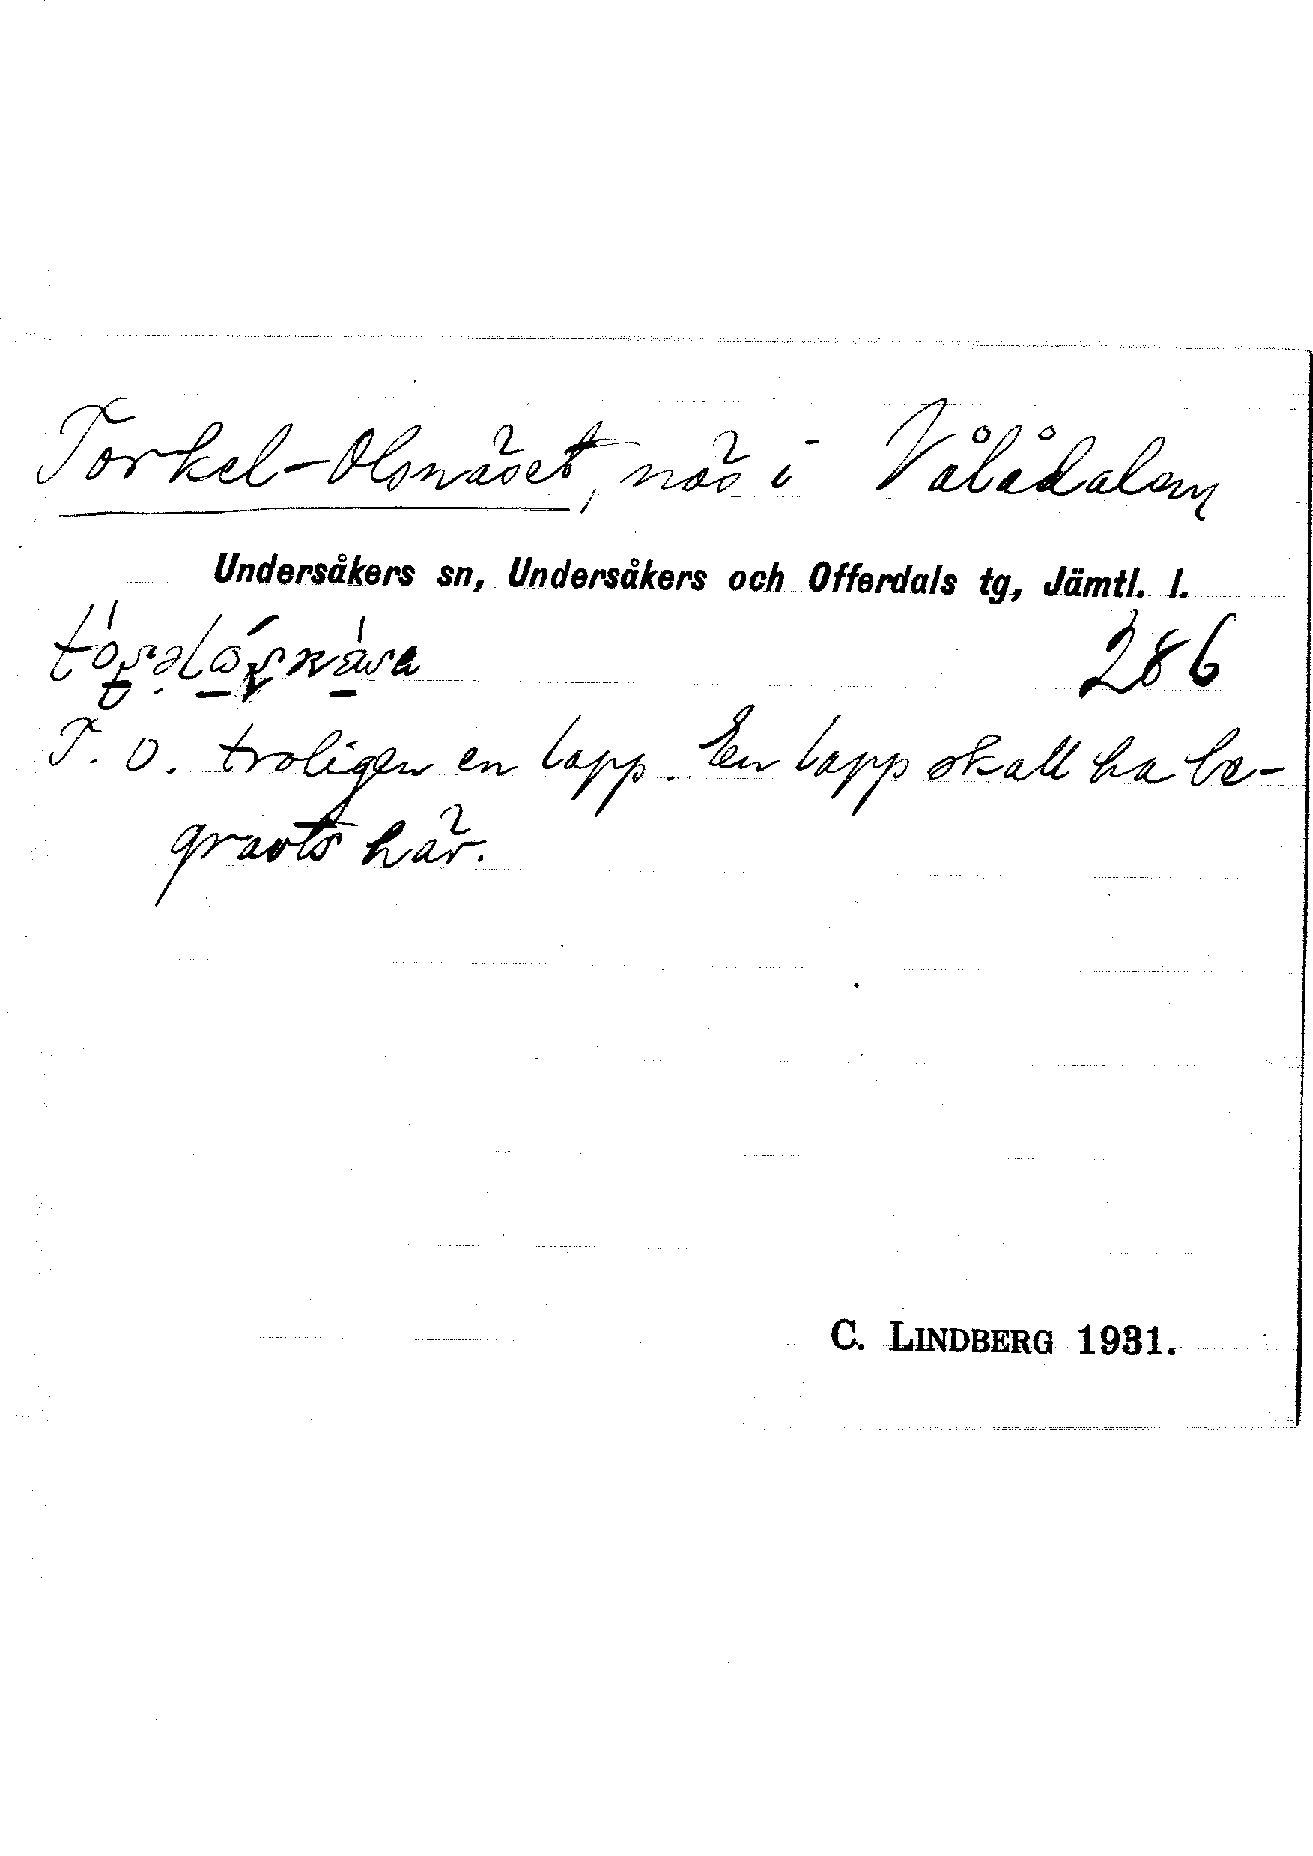 Torkel-Olsnäset, näs i Vålådalen
Undersåkers sn, Undersåkers och Offerdals tg, Jämtl. l.
286
T. O. troligen en lapp. En lapp skall ha be-
gravts här.
C. LINDBERG 1931.